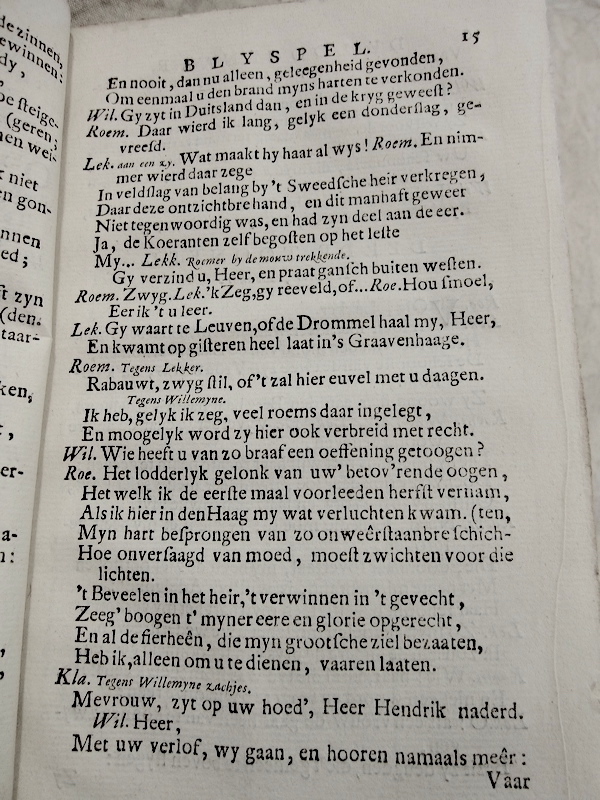 BLYSPEL. 15
En nooit, dan nu alleen, geleegenheid gevonden,
Om eenmaal u den brand myns harten te verkonden.
Wil. Gy zyt in Duitsland dan, en in de kryg geweest?
Roem. Daar wierd ik lang, gelyk een donderslag, ge-
vreesd.
Lek. aan een zy. Wat maakt hy haar al wys! Roem. En nim-
mer wierd daar zege
In veldslag van belang by 't Sweedsche heir verkregen,
Daar deze ontzichtbre hand, en dit manhaft geweer
Niet tegenwoordig was, en had zyn deel aan de eer.
Ja, de Koeranten zelf begosten op het leste
My... Lekk. Roemer by de mouw trekkende.
Gy verzind u, Heer, en praat gansch buiten westen.
Roem. Zwyg. Lek. 'k Zeg, gy reeveld, of... Roe. Hou smoel,
Eer ik 't u leer.
Lek. Gy waart te Leuven, of de Drommel haal my, Heer,
En kwamt op gisteren heel laat in 's Graavenhaage.
Roem. Tegens Lekker.
Rabauwt, zwyg stil, of 't zal hier euvel met u daagen.
Tegens Willemyne.
Ik heb, gelyk ik zeg, veel roems daar ingelegt,
En moogelyk word zy hier ook verbreid met recht.
Wil. Wie heeft u van zo braaf een oeffening getoogen?
Roe. Het lodderlyk gelonk van uw' betov'rende oogen,
Het welk ik de eerste maal voorleeden herfst vernam,
Als ik hier in den Haag my wat verluchten kwam. (ten,
Myn hart besprongen van zo onweêrstaanbre schich-
Hoe onversaagd van moed, moest zwichten voor die
lichten.
't Beveelen in het heir, 't verwinnen in 't gevecht,
Zeeg' boogen t' myner eere en glorie opgerecht,
En al de fierheên, die myn grootsche ziel bezaaten,
Heb ik, alleen om u te dienen, vaaren laaten.
Kla. Tegens Willemyne zachjes.
Mevrouw, zyt op uw hoed', Heer Hendrik naderd.
Wil. Heer,
Met uw verlof, wy gaan, en hooren namaals meêr:
Vaar